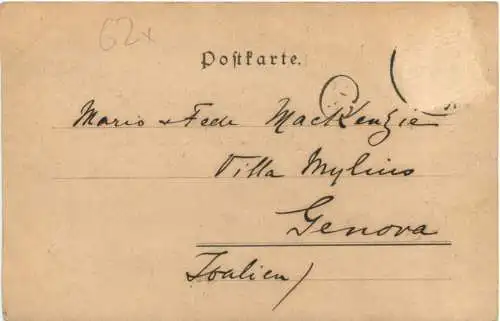 62x
Postkarte.
Mario & Fede MacKenzie
Villa Mylius
Genova
Italien)